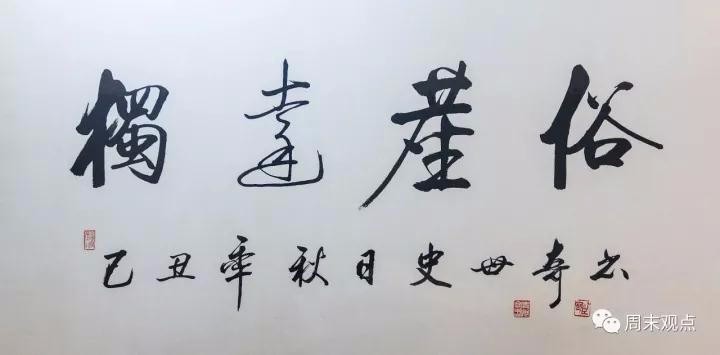 獨達塵俗
己丑年秋日史世奇书
周末观点